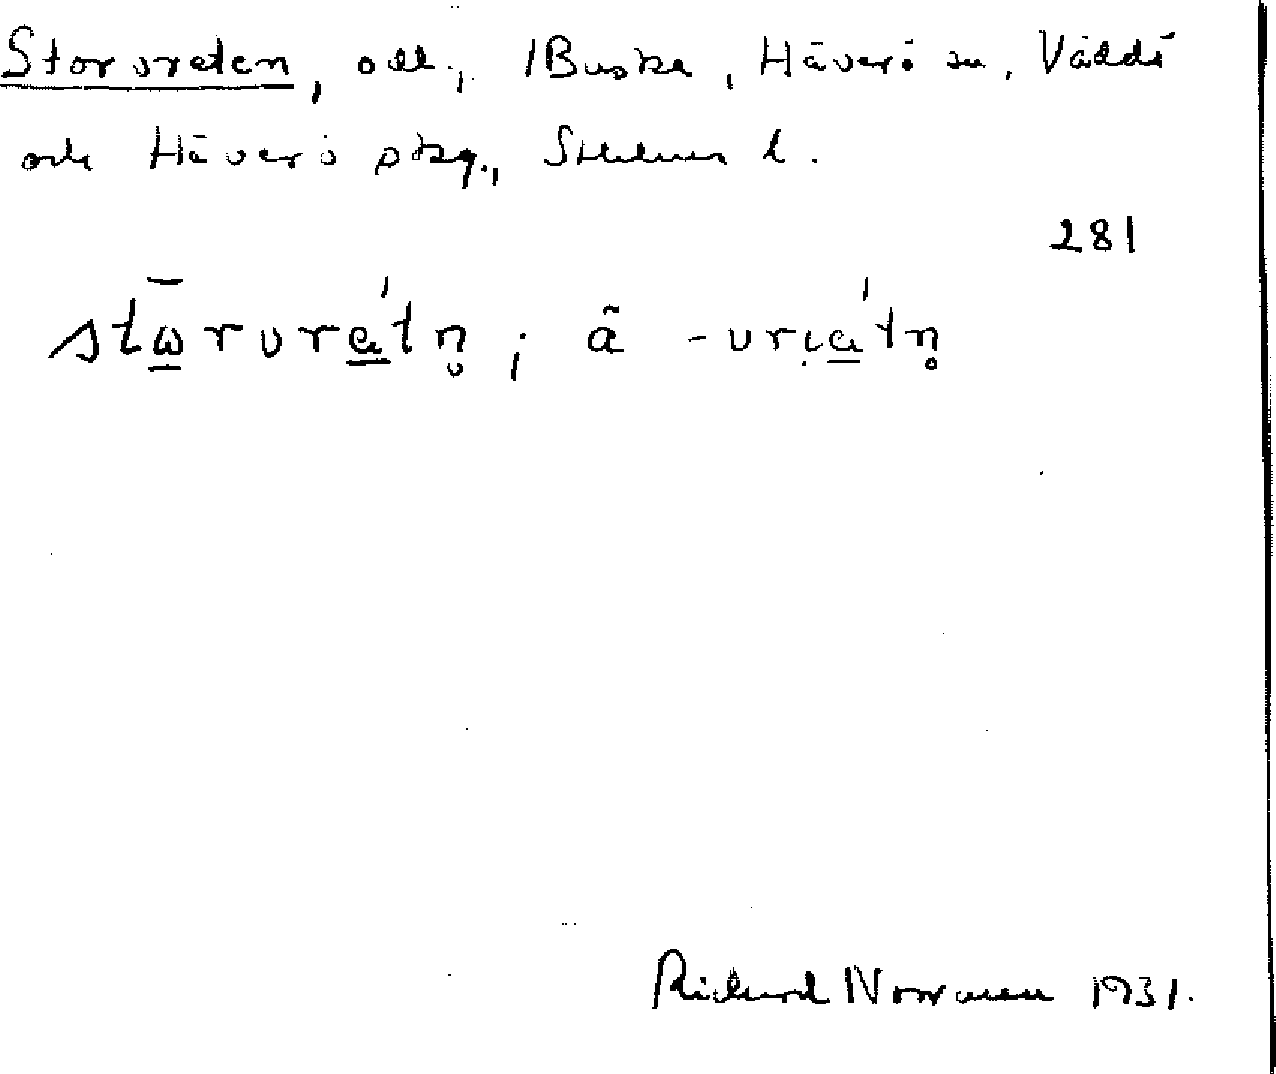 Storvreten, odl., /Buska, Häverö sn, Väddö
och Häverö skg., Sthlms l.
281
stωrvratn̥; ä -vrıatn̥
Richard Norrman 1931.